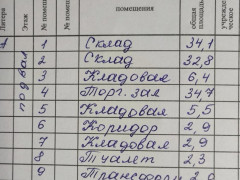 Литера Этаж № помещ № помещ помещения общая площадь учрежд ческое
А подвал 1 Склад 34,1
2 Склад 32,8
3 Кладовая 6,4
4 Торг. зал 34,7
5 Кладовая 5,5
6 Коридор 2,9
7 Кладовая 2,9
8 Туалет 2,3
9